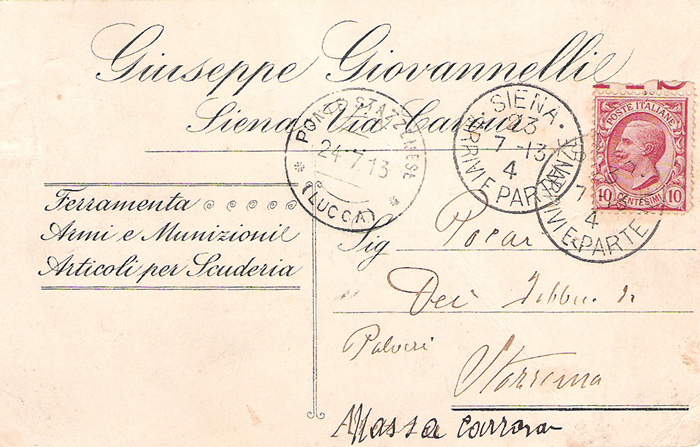 Giuseppe Giovannelli
Siena Via Cavour
PONTE STAZZEMESE
24·7.13
(LUCCA)
SIENA
23
7-13
4
ARRIVI E PARTENZE
POSTE ITALIANE
10 CENTESIMI 10
7
4
ARRIVI E PARTENZE
Ferramenta
Armi e Munizioni
Articoli per Scuderia
Sig
Dei
Polveri
Massa Carrara